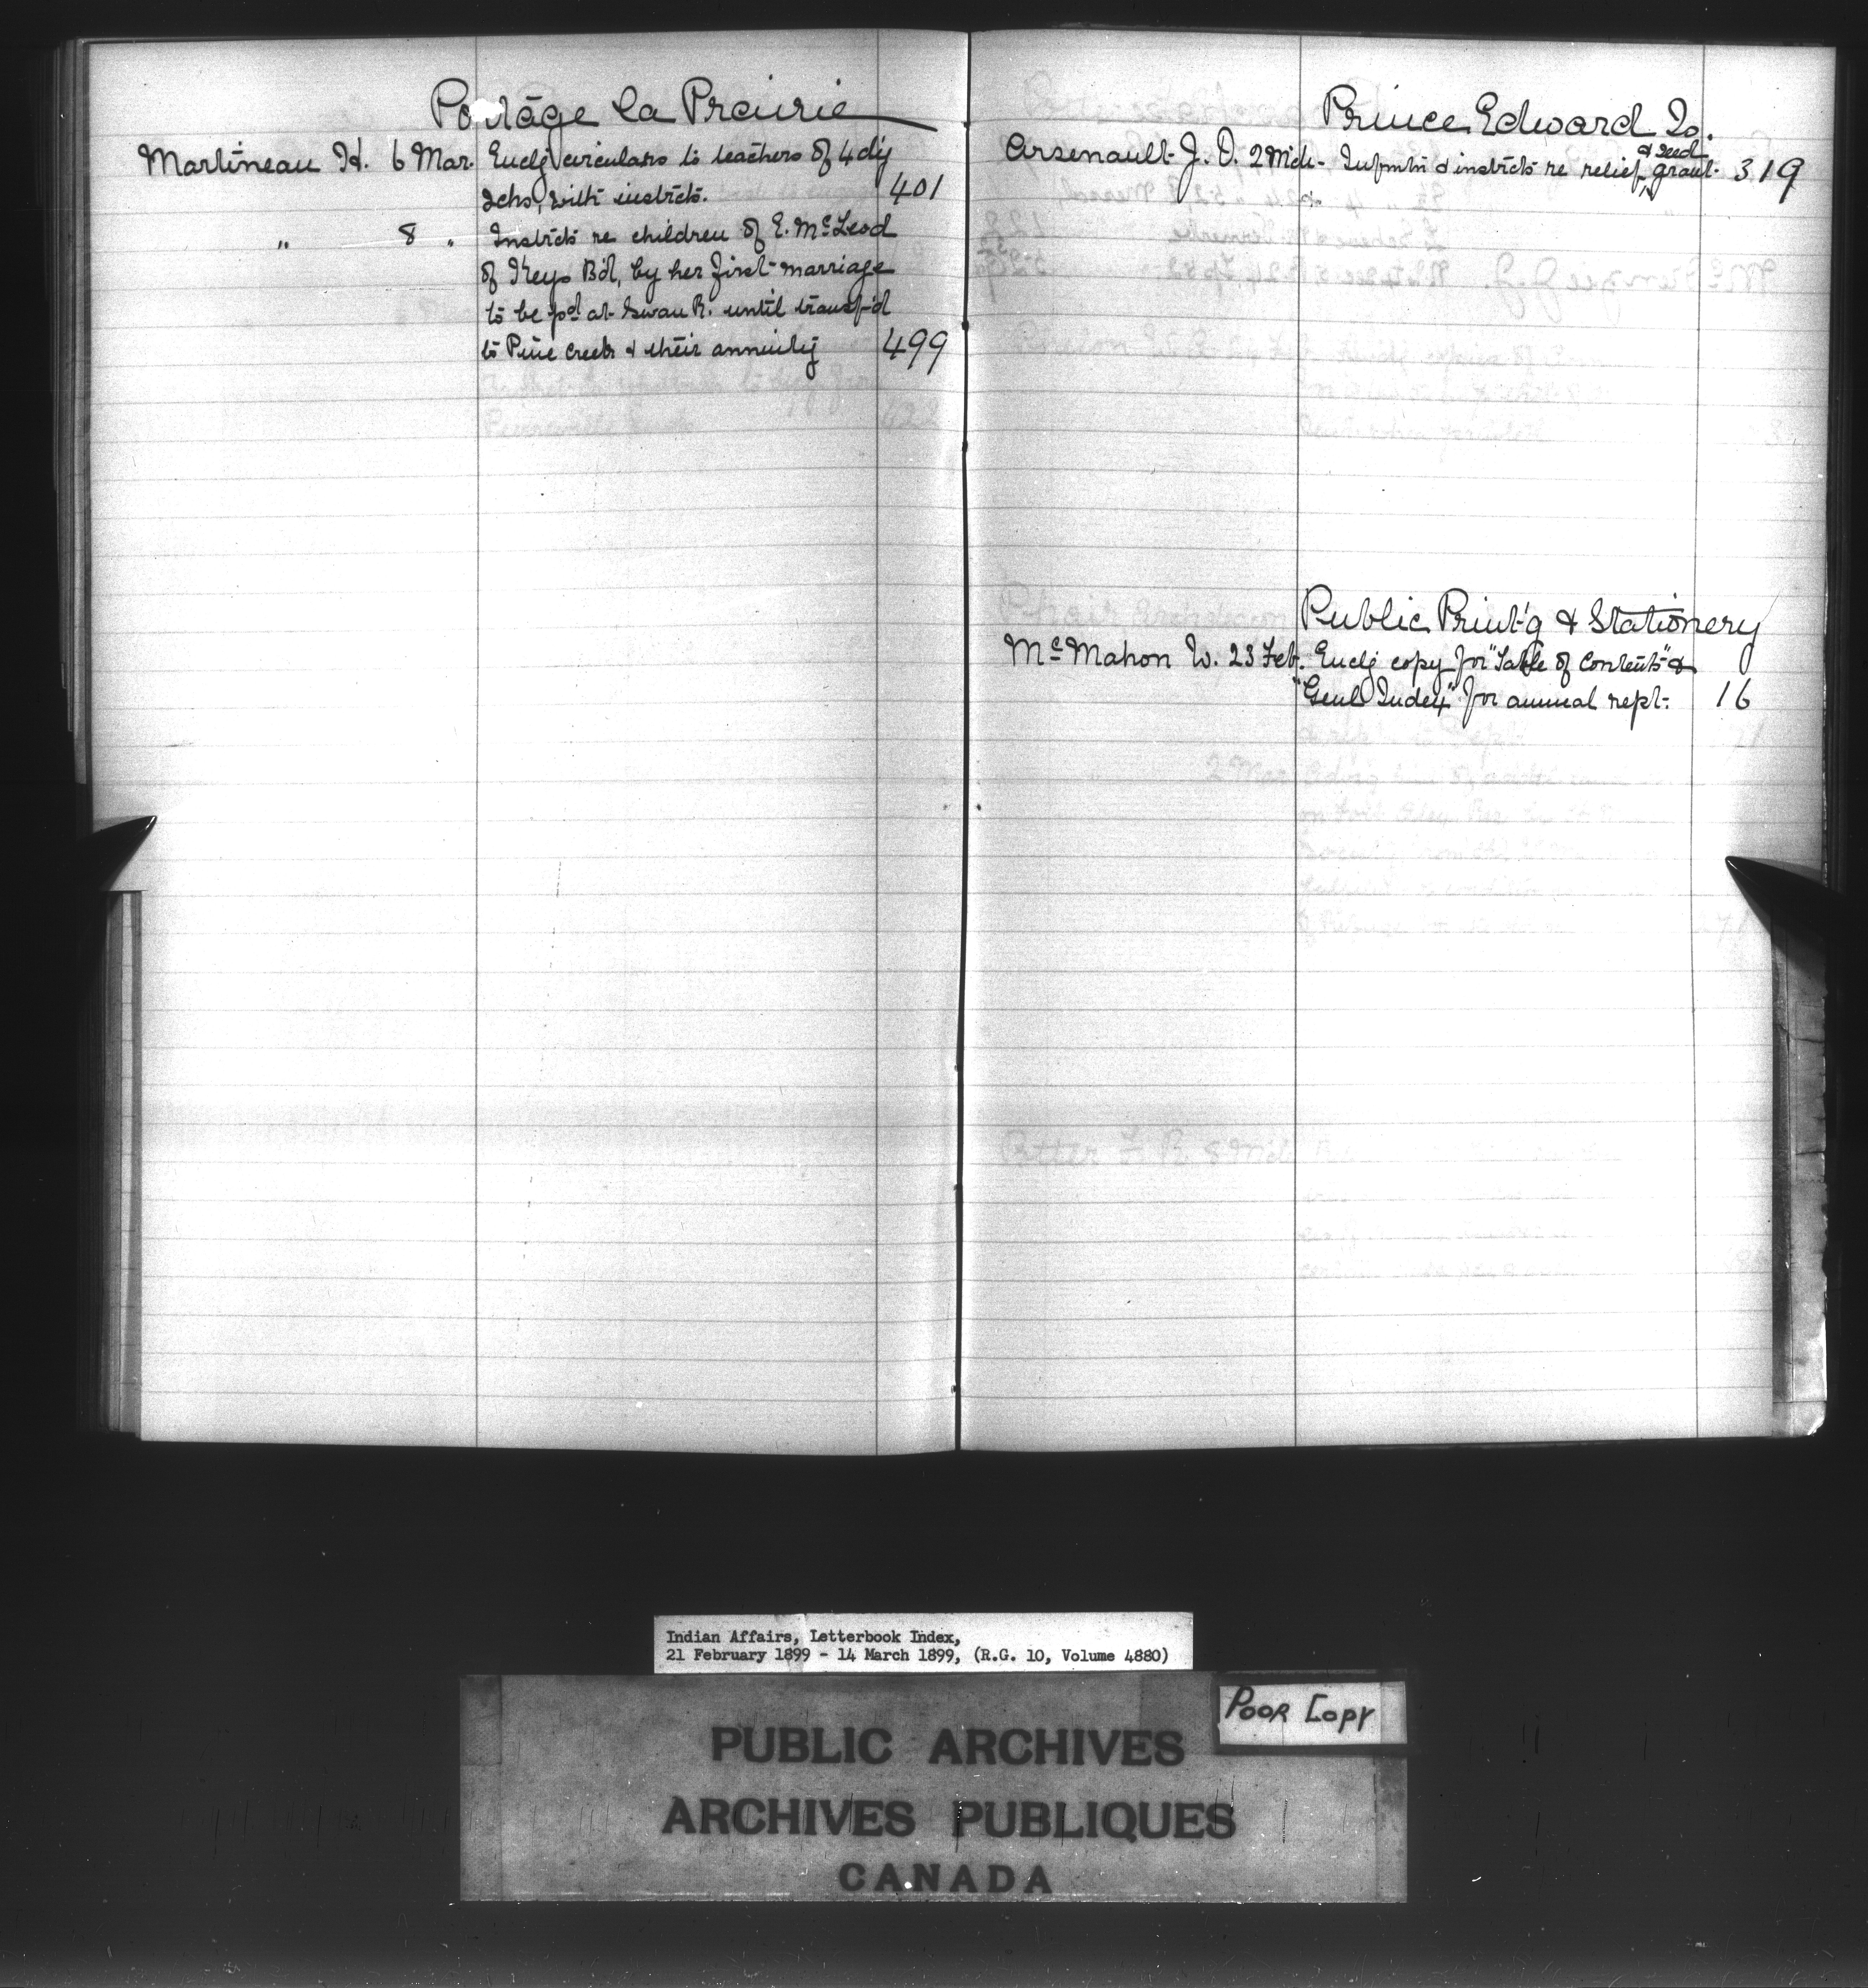 Portage la Prairie
Martineau H. 6 Mar. Enclg circulars to teachers of 4 dy
schs, with instrcts. 401
" 8 " Instrcts re children of E. McLeod
of Keys Bd, by her first marriage
to be pd at Swan R. until transf'd
to Pine Creek & their annuity 499
Prince Edward Is.
& seed
Arsenault J. O. 2 Mch - Infmtn & instrcts re relief grant. 319
Public Print'g & Stationery
McMahon W. 23 Feb. Enclg copy for "Table of Contents" &
"Genl Index" for annual rept. 16
Indian Affairs, Letterbook Index,
21 February 1899 - 14 March 1899, (R.G. 10, Volume 4880)
POOR COPY
PUBLIC ARCHIVES
ARCHIVES PUBLIQUES
CANADA